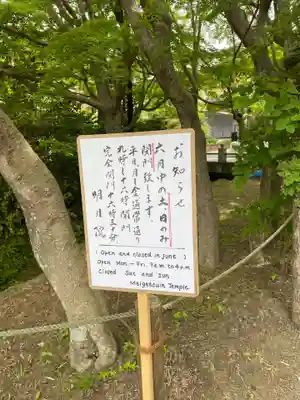 お知らせ
六月中の土・日のみ
閉門致します。
平日月〜金通常通り
九時〜十六時開門
完全閉門十六時三十分
明月院
( Open and closed in june )
Open Mon – Fri. 9am to 4pm
Closed Sat and Sun
Meigetsuin Temple